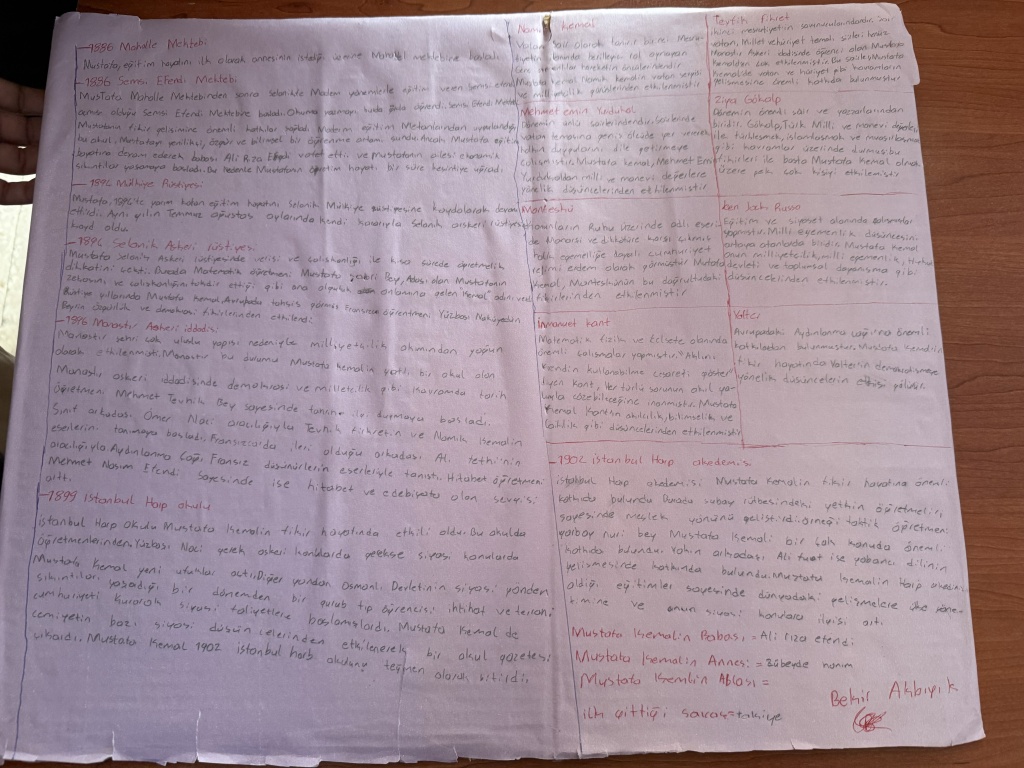 1886 Mahalle Mektebi
Mustafa, eğitim hayatını ilk olarak annesinin isteği üzerine Mahalle mektebine başladı.
1886 Şemsi Efendi Mektebi
Mustafa Mahalle Mektebinden sonra Selanikte Modern yöntemlerle eğitim veren Şemsi efendi
Mektebine başladı. Okuma yazmayı burda öğrendi. Şemsi Efendi
Mustafanın fikir gelişimine önemli katkılar sağladı. Modern eğitim Metodlarından uygulandığı
bu okul, Mustafaya yenilikçi, özgür ve bilimsel bir öğrenme ortamı sundu. Ancak Mustafa eğitim
hayatına devam ederken babası Ali Rıza vefat etti ve Mustafanın ailesi ekonomik
sıkıntılar yaşamaya başladı. Bu nedenle Mustafanın öğretim hayatı bir süre kesintiye uğradı
1894 Mülkiye Rüştiyesi
Mustafa, 1894'te yarım kalan eğitim hayatını Selanik Mülkiye rüştiyesine kaydolarak devam
ettirdi. Aynı yılın Temmuz ağustos aylarında kendi kararıyla Selanik askeri rüştiyesine
kayd oldu
1894 Selanik Askeri rüştiyesi
Mustafa Selanik Askeri rüştiyesinde zekası ve çalışkanlığı ile kısa sürede öğretmenlerin
dikkatini çekti. Burada Matematik öğretmeni Mustafa Sabri Bey, Adaşı olan Mustafanın
zekasını ve çalışkanlığını takdir ettiği için ona olgunluk anlamına gelen Kemal adını verdi
Rüştiye yıllarında Mustafa Kemal, Avrupada tahsil görmüş Fransızca öğretmeni Yüzbaşı Nakiyuddin
Beyin özgürlük ve demokrasi fikirlerinden etkilendi.
1896 Manastır Askeri iddadisi
Manastır şehri çok uluslu yapısı nedeniyle milliyetçilik akımından yoğun
olarak etkilenmişti. Manastır bu durumu Mustafa kemalin yatılı bir okul olan
Manastır askeri iddadisinde demokrasi ve milletcilik gibi kavramda tarih
öğretmeni Mehmet Tevfik Bey sayesinde tanıma ilgi duymaya başladı.
Sınıf arkadaşı Ömer Naci aracılığıyla Tevfik Fikretin ve Namık Kemalin
eserlerin tanımaya başladı. Fransızcada ileri olduğu arkadaşı Ali fethi'nin
aracılığıyla Aydınlanma Çağı Fransız düşünürlerin eserleriyle tanıştı. Hitabet öğretmeni
Mehmet Nasım Efendi sayesinde ise hitabet ve edebiyata olan sevgisi
arttı.
1899 İstanbul Harp okulu
İstanbul Harp Okulu Mustafa Kemalin fikir hayatında etkili oldu. Bu okulda
öğretmenlerinden Yüzbaşı Naci gerek askeri konularda gerekse siyasi konularda
Mustafa Kemal yeni ufuklar açtı. Diğer yandan Osmanlı Devletinin siyasi yönden
sıkıntıları yaşadığı bir dönemden bir gurub tıp öğrencisi ittihat ve terakki
cumhuriyeti kurarak siyasi faliyetlere başlamışlardı. Mustafa Kemal de
cemiyetin bazı siyasi düşün celerinden etkilenerek bir okul gazetesi
çıkardı. Mustafa Kemal 1902 istanbul harb okulunu teğmen olarak bitirdi.
Namık kemal
Vatan Şair olarak tanınır birinci Meşru-
tiyetin ilanında
Mustafa kemal Namık kemalin vatan sevgisi
ve milliyetçilik görüşlerinden etkilenmiştir
Mehmet emin Yurdakul
Dönemin ünlü şairlerindendir. Şiirlerinde
vatan temasına geniş ölçüde yer vererek
halkın duygularını dile getirmeye
çalışmıştır. Mustafa kemal, Mehmet Emin
Yurdakuldan milli ve manevi değerlere
yönelik düşüncelerinden etkilenmiştir
Monteskü
Kanunların Ruhu üzerinde adlı eseri
de Monarşi ve diktatöre karşı çıkmış
halk egemenliğe dayalı cumhuriyet
rejimi erdem olarak görmüştür Mustafa
Kemal, Monteskünün bu doğrultudaki
fikirlerinden etkilenmiştir
İmmanuel kant
Matematik fizik ve felsefe alanında
önemli çalışmalar yapmıştır. "Aklını
kendin kullanabilme cesareti göster"
diyen kant, Her türlü sorunun akıl yo-
luyla çözebileceğine inanmıştır. Mustafa
Kemal Kantın akılcılık, bilimsellik ve
laiklik gibi düşüncelerinden etkilenmiştir
Tevfik fikret
ikinci meşrutiyetin savunucularındandır
vatan, Millet ve hürriyet temalı şiirleri
Manastır Askeri iddadisinde öğrenci olan Mustafa
Kemalde vatan ve hürriyet gibi kavramların
gelişmesine önemli katkıda bulunmuştur
Ziya Gökalp
Dönemin önemli şair ve yazarlarından
biridir. Gökalp, Türk Milli ve manevi değerleri
ile türkleşmek, islamlaşmak ve muasırlaşmak
gibi kavramlar üzerinde durmuş bu
fikirleri ile başta Mustafa Kemal olmak
üzere pek çok kişiyi etkilemiştir
Jan Jack Ruso
Eğitim ve siyaset alanında çalışmalar
yapmıştır. Milli egemenlik düşüncesini
ortaya atanlarda biridir Mustafa Kemal
onun milliyetcilik, milli egemenlik, Hukuk
devleti ve toplumsal dayanışma gibi
düşüncelerinden etkilenmiştir.
Volter
Avrupadaki Aydınlanma çağına önemli
katkılardan bulunmuştur. Mustafa Kemalin
fikir hayatında Volterin demokratikleşme
yönelik düşüncelerin etkisi görülür.
1902 istanbul Harp akademisi
istanbul Harp akademisi Mustafa Kemalin fikir hayatına önemli
katkıda bulundu Burada subay rütbesindeki yetkin öğretmenleri
sayesinde meslek yönünü geliştirdi. Örneği taktik öğretmeni
yarbay nuri bey Mustafa Kemali bir çok konuda önemli
katkıda bulundu. Yakın arkadaşı Ali fuat ise yabancı dilinin
gelişmesinde katkında bulundu. Mustafa Kemalin Harp akademisi
aldığı eğitimler sayesinde dünyadaki gelişmelere ülke yöne-
timine ve onun siyasi konulara ilgisi arttı.
Mustafa Kemalin Babası = Ali rıza efendi
Mustafa Kemalin Annesi = Zübeyde hanım
Mustafa Kemalin Ablası =
ilk gittiği savaş = takiye
Bekir Akbıyık